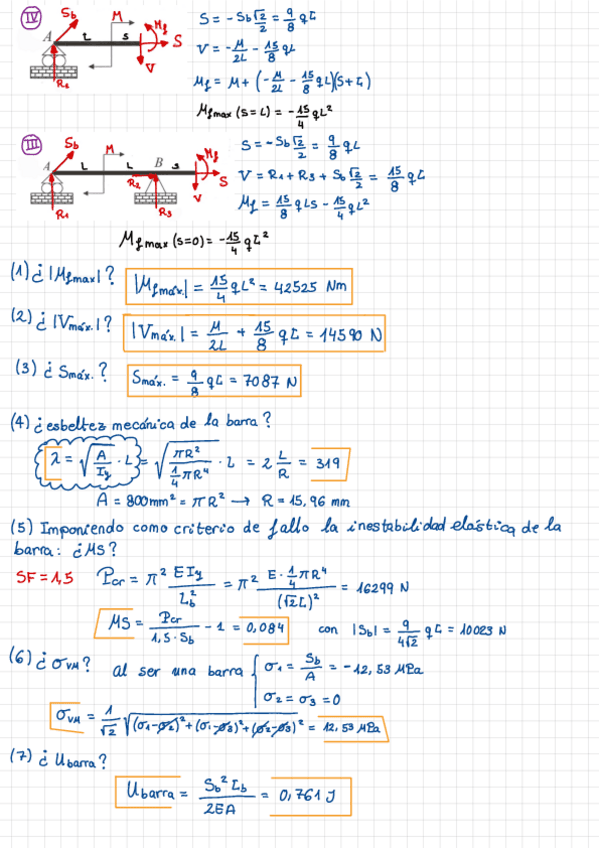 IV
Sb M Mf
A L S S
V
R1
S = -Sb √2/2 = 9/8 qL
V = -M/2L - 15/8 qL
Mf = M + (-M/2L - 15/8 qL)(S+L)
Mfmax (s=L) = -15/4 qL²
III
Sb M Mf
A L L B S S
R2 V
R1 R3
S = -Sb √2/2 = 9/8 qL
V = R1 + R3 + Sb √2/2 = 15/8 qL
Mf = 15/8 qLs - 15/4 qL²
Mfmax (s=0) = -15/4 qL²
(1) ¿|Mfmax|? |Mfmáx.| = 15/4 qL² = 42525 Nm
(2) ¿|Vmáx.|? |Vmáx.| = M/2L + 15/8 qL = 14590 N
(3) ¿Smáx.? Smáx. = 9/8 qL = 7087 N
(4) ¿esbeltez mecánica de la barra?
λ = √(A/Iy) · L = √(πR²/(1/4 πR⁴)) · L = 2 L/R = 319
A = 800mm² = πR² → R = 15,96 mm
(5) Imponiendo como criterio de fallo la inestabilidad elástica de la
barra: ¿MS?
SF = 1,5 Pcr = π² EIy/Lb² = π² E·1/4 πR⁴/(√2L)² = 16299 N
MS = Pcr/(1,5·Sb) - 1 = 0,084 con |Sb| = 9/(4√2) qL = 10023 N
(6) ¿σVM? al ser una barra { σ1 = Sb/A = -12,53 MPa
σ2 = σ3 = 0
σVM = 1/√2 √((σ1-σ2)²+(σ1-σ3)²+(σ2-σ3)²) = 12,53 MPa
(7) ¿Ubarra?
Ubarra = Sb² Lb/2EA = 0,761 J